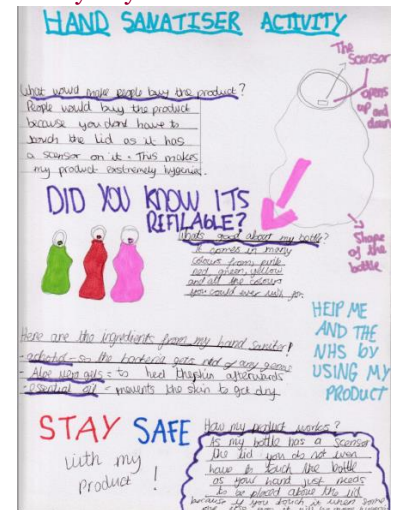 HAND SANATISER ACTIVITY
The
Scensor
opens
up and
down
What would make people buy the product?
People would buy the product
because you dont have to
touch the lid as it has
a scensor on it. This makes
my product exstremely hygenic.
DID YOU KNOW ITS
REFILABLE?
Whats good about my bottle?
It comes in many
colours from, pink
red, green, yellow
and all the colours
you could ever wish for.
Shape
of the
bottle
HElP ME
AND THE
NHS by
USING MY
PRODUCT
Here are the ingredients from my hand saniter!
- alcohol - so the bacteria gets rid of any germs
- Aloe vera gels = to heal the skin afterwards
- essential oil = prevents the skin to get dry
STAY SAFE
with my
product !
How my product works?
As my bottle has a scensor
the lid you do not even
have to touch the bottle
as your hand just needs
to be placed above the lid
because if you touch it when some